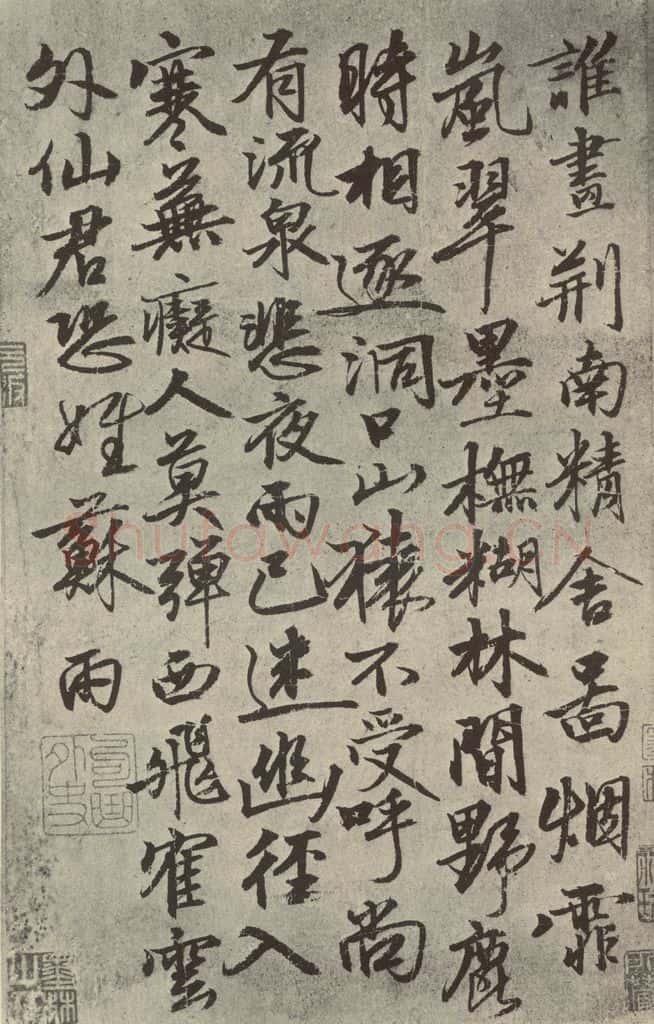 誰畫荆南精舍圖烟霏
嵐翠墨橅糊林間野鹿
時相逐洞口山猿不受呼尚
有流泉悲夜雨已迷幽徑入
寒蕪癡人莫彈西飛寉雲
外仙君恐姓蘇 雨
Shufawang.CN